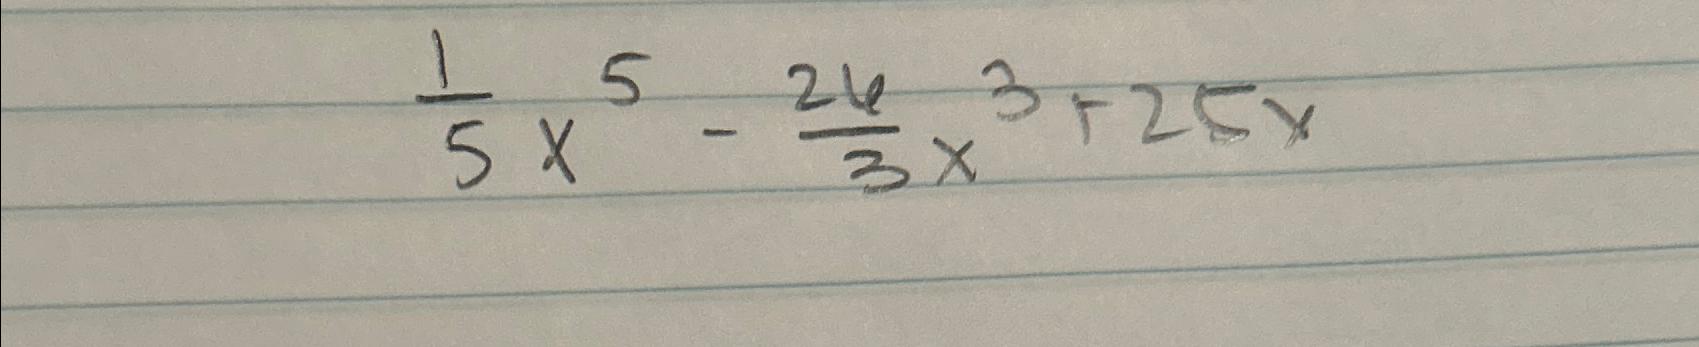 1/5 x^5 - 26/3 x^3 + 25x